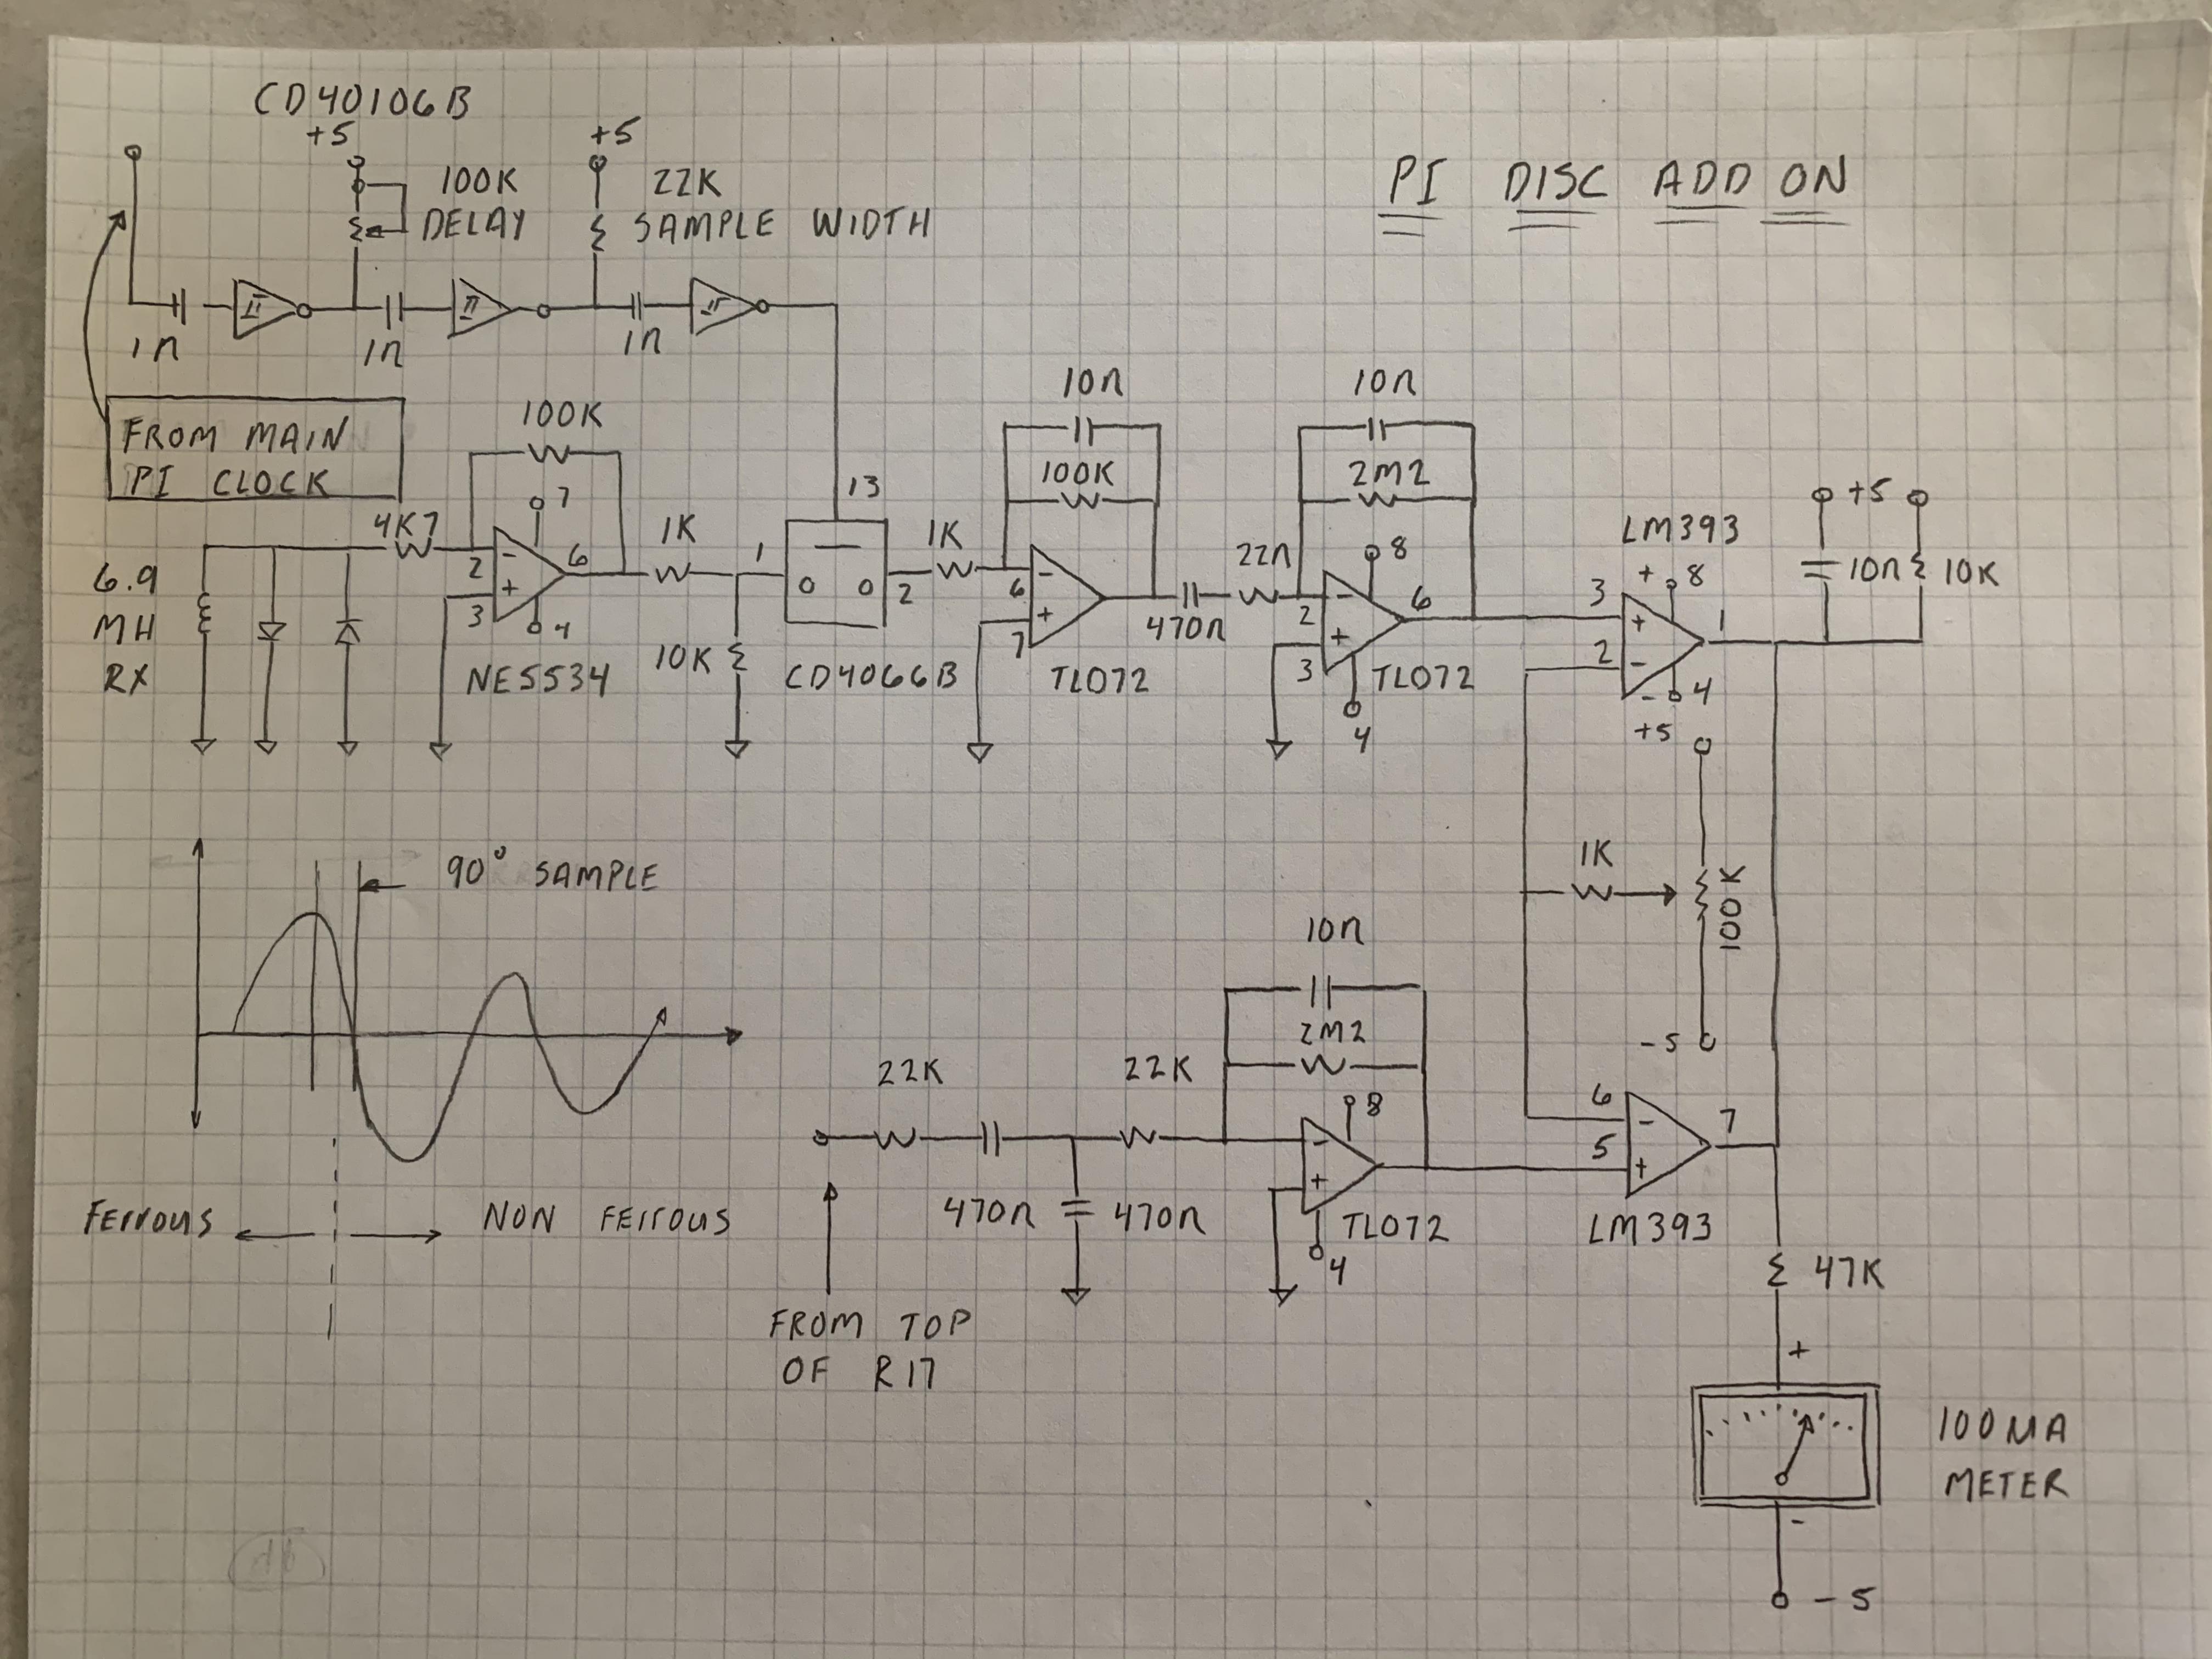 CD40106B
PI DISC ADD ON
+5
+5
100K
DELAY
22K
SAMPLE WIDTH
1n
1n
1n
FROM MAIN
PI CLOCK
100K
7
4K7
2
3
6
4
NE5534
6.9
MH
RX
1K
10K
1
13
2
CD4066B
1K
10n
100K
6
7
TL072
470n
22n
10n
2M2
8
2
3
6
4
TL072
LM393
+ 8
3
2
1
- 4
+5
10n
10K
+5
1K
100K
-5
90° SAMPLE
Ferrous
NON Ferrous
22K
470n
470n
22K
10n
2M2
8
4
TL072
FROM TOP
OF R17
6
5
7
LM393
47K
+
100MA
METER
-
-5